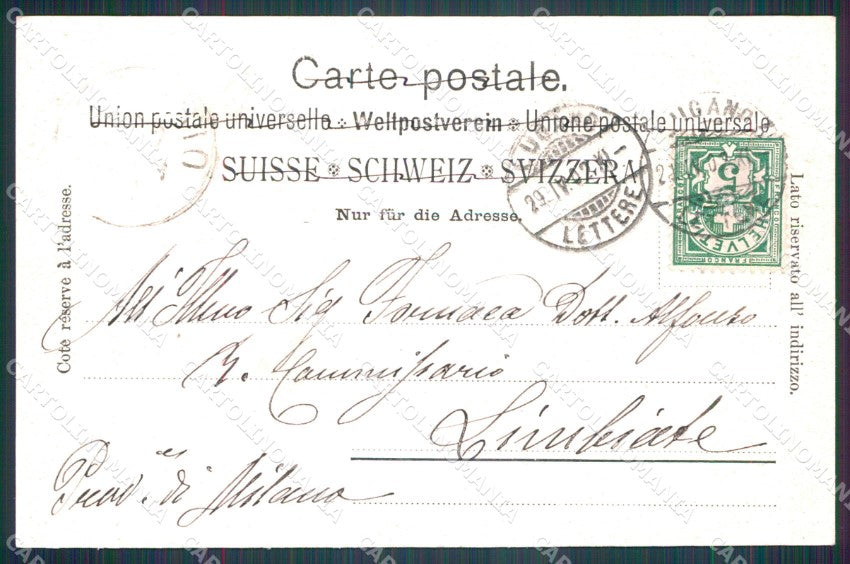 Carte postale.
Union postale universelle Weltpostverein Unione postale universale
SUISSE SCHWEIZ SVIZZERA
Nur für die Adresse.
Cote réservé à l'adresse.
Lato riservato all' indirizzo.
LETTERE
5
FRANCO
HELVETIA
All' Illmo Sig Fornaca Dott. Alfonso
R. Commissario
Limbiate
Prov. di Milano
CARTOLINOMANIA